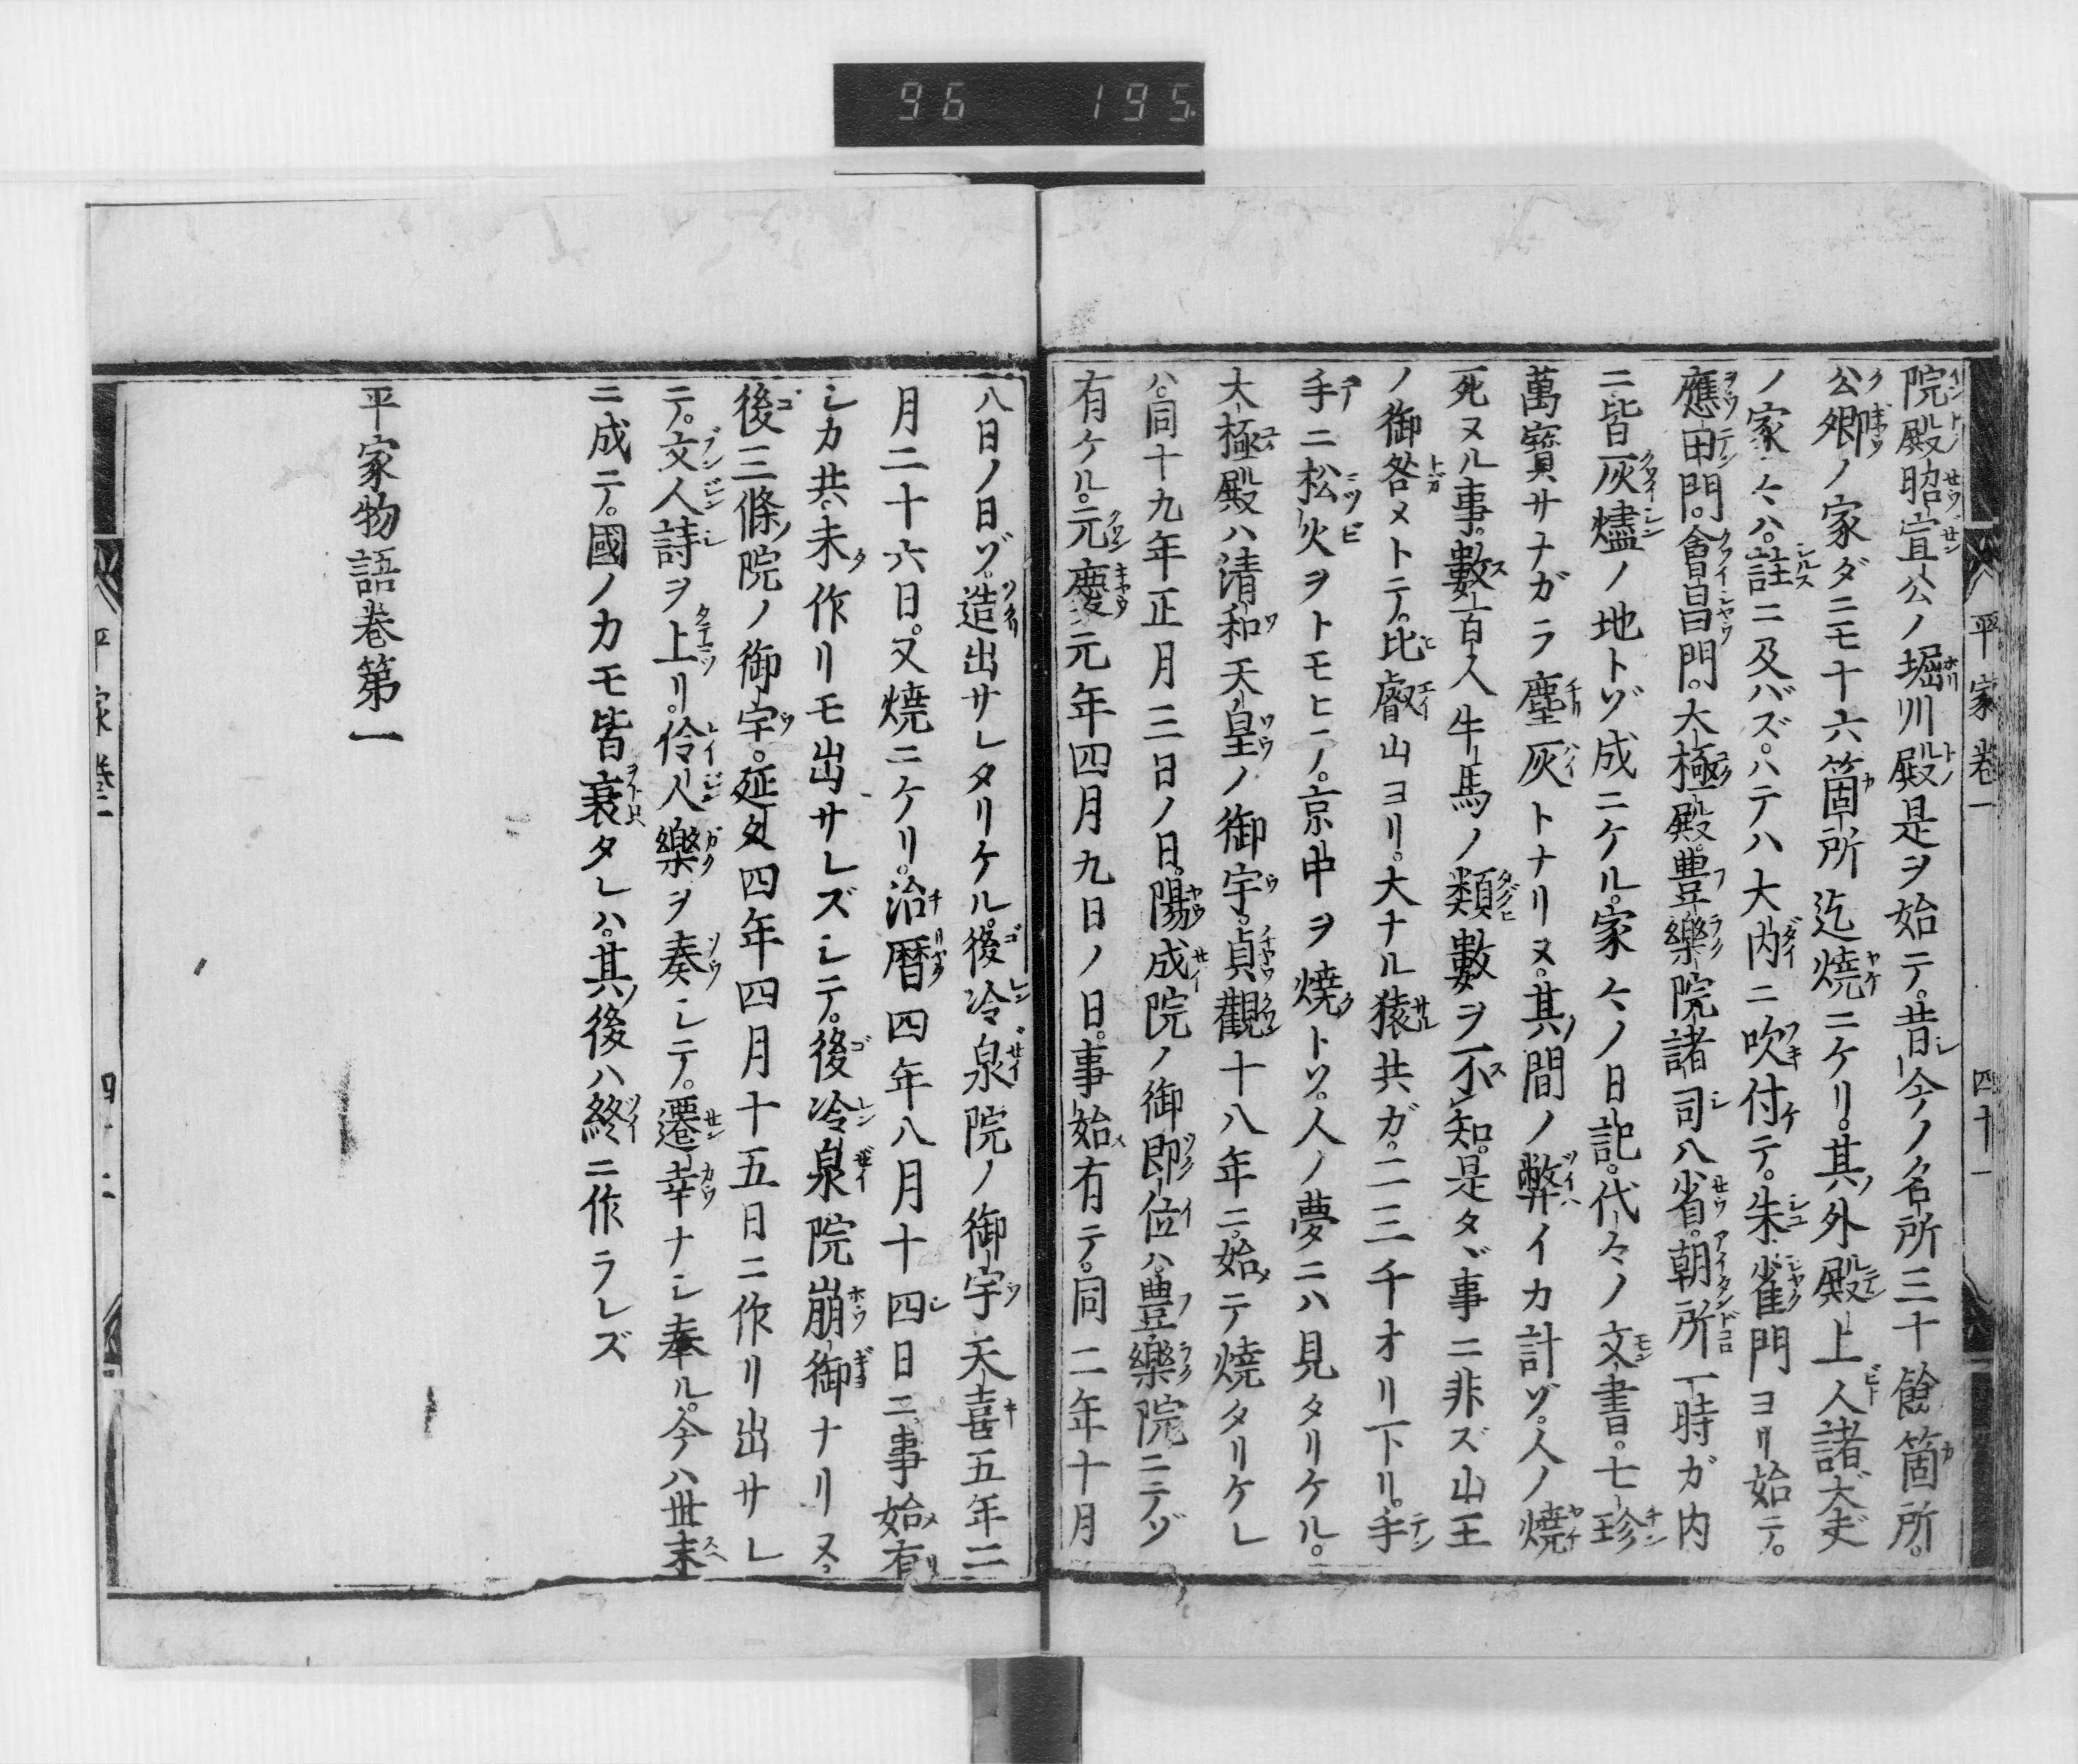 96 195
平家卷一 四十一
院殿昭宣公ノ堀川殿是ヲ始テ。昔今ノ名所三十餘箇所。
公卿ノ家ダニモ十六箇所迄燒ニケリ。其外殿上人諸大夫
ノ家々ハ。註ニ及バズ。ハテハ大内ニ吹付テ。朱雀門ヨリ始テ。
應田門。會昌門。大極殿。豊樂院諸司八省。朝所一時ガ内
ニ皆灰燼ノ地トゾ成ニケル。家々ノ日記。代々ノ文書。七珍
萬寳サナガラ塵灰トナリヌ。其間ノ弊イカ計ゾ。人ノ燒
死ヌル事。數百人牛馬ノ類數ヲ不知。是タヾ事ニ非ズ山王
ノ御咎メトテ。比叡山ヨリ。大ナル猿共ガ。二三千オリ下リ。手
手ニ松火ヲトモヒニノ。京中ヲ燒トソ。人ノ夢ニハ見タリケル。
大極殿ハ清和天皇ノ御宇。貞觀十八年ニ。始テ燒タリケレ
ハ。同十九年正月三日ノ日。陽成院ノ御即位ハ。豊樂院ニテゾ
有ケル。元慶元年四月九日ノ日。事始有テ。同二年十月
八日ノ日ゾ。造出サレタリケル。後冷泉院ノ御宇天喜五年二
月二十六日。又燒ニケリ。治暦四年八月十四日ニ事始有
シカ共。未作リモ出サレズシテ。後冷泉院崩御ナリヌ。
後三條院ノ御宇。延久四年四月十五日ニ作リ出サレ
テ。文人詩ヲ上リ。伶人樂ヲ奏シテ。遷幸ナシ奉ル。今ハ世末
ニ成テ。國ノカモ皆衰タレハ。其後ハ終ニ作ラレズ
平家物語卷第一
平家卷一 四十二